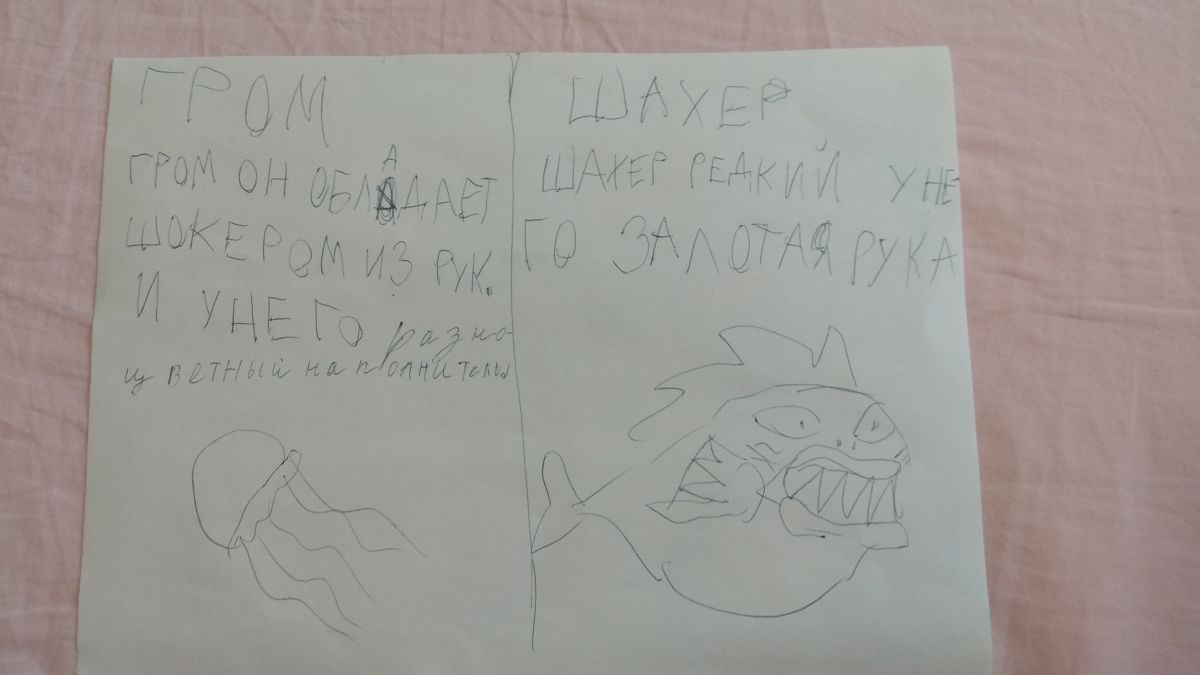 ГРОМ
ГРОМ ОН ОБЛАДАЕТ
ШОКЕРОМ ИЗ РУК.
И У НЕГО разно-
цветный наполнитель
ШАХЕР
ШАХЕР РЕДКИЙ У НЕ-
ГО ЗАЛОТАЯ РУКА